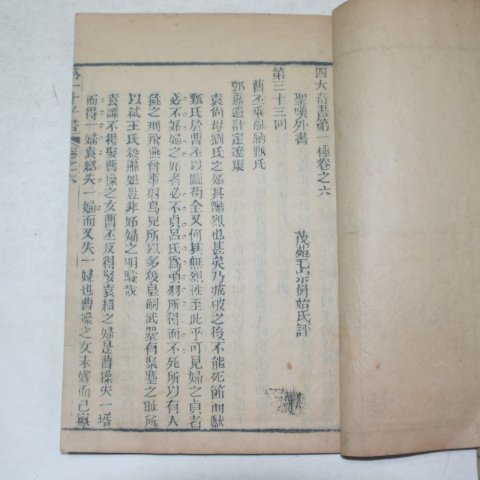 四大奇書第一種卷之六
聖嘆外書
茂苑毛宗崗序始氏評
第三十三回
曹丕乘亂納甄氏
郭嘉遺計定遼東
袁尚母劉氏之妬其酷烈也甚矣乃城破之後不能死節而獻
甄氏於曹丕以圖苟全又何其無烈性至此乎可見婦之貞者
必不妬婦之妬者必不貞呂氏為項羽所得而不死所以有人
彘之刑飛燕有射鳥兒所以多殺皇嗣武曌有聚麀之恥所
以弒王后
袁譚不得娶曹操之女曹丕反得娶袁紹之婦是曹操失一壻
而得一婦袁紹失一婦而又失一婦也曹操之女未嫁而已
第一才子書
卷之六